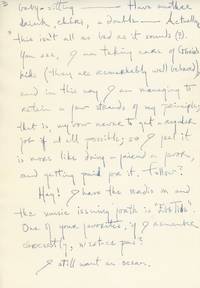 baby-sitting — Have another
drink, chéri, a double — Actually
this isn't all as bad as it sounds (?).
You see, I am taking care of
kids (they are remarkably well behaved)
and in this way I am managing to
retain a few strands of my principles,
that is, my vow never to get a regular
job if at all possible; so I feel it
is more like doing a friend a favor,
and getting paid for it. Follow?
Hey! I have the radio on and
the music issuing forth is "Ebb Tide".
One of your favorites, if I remember
correctly, n'est-ce pas?
I still want an ocean.